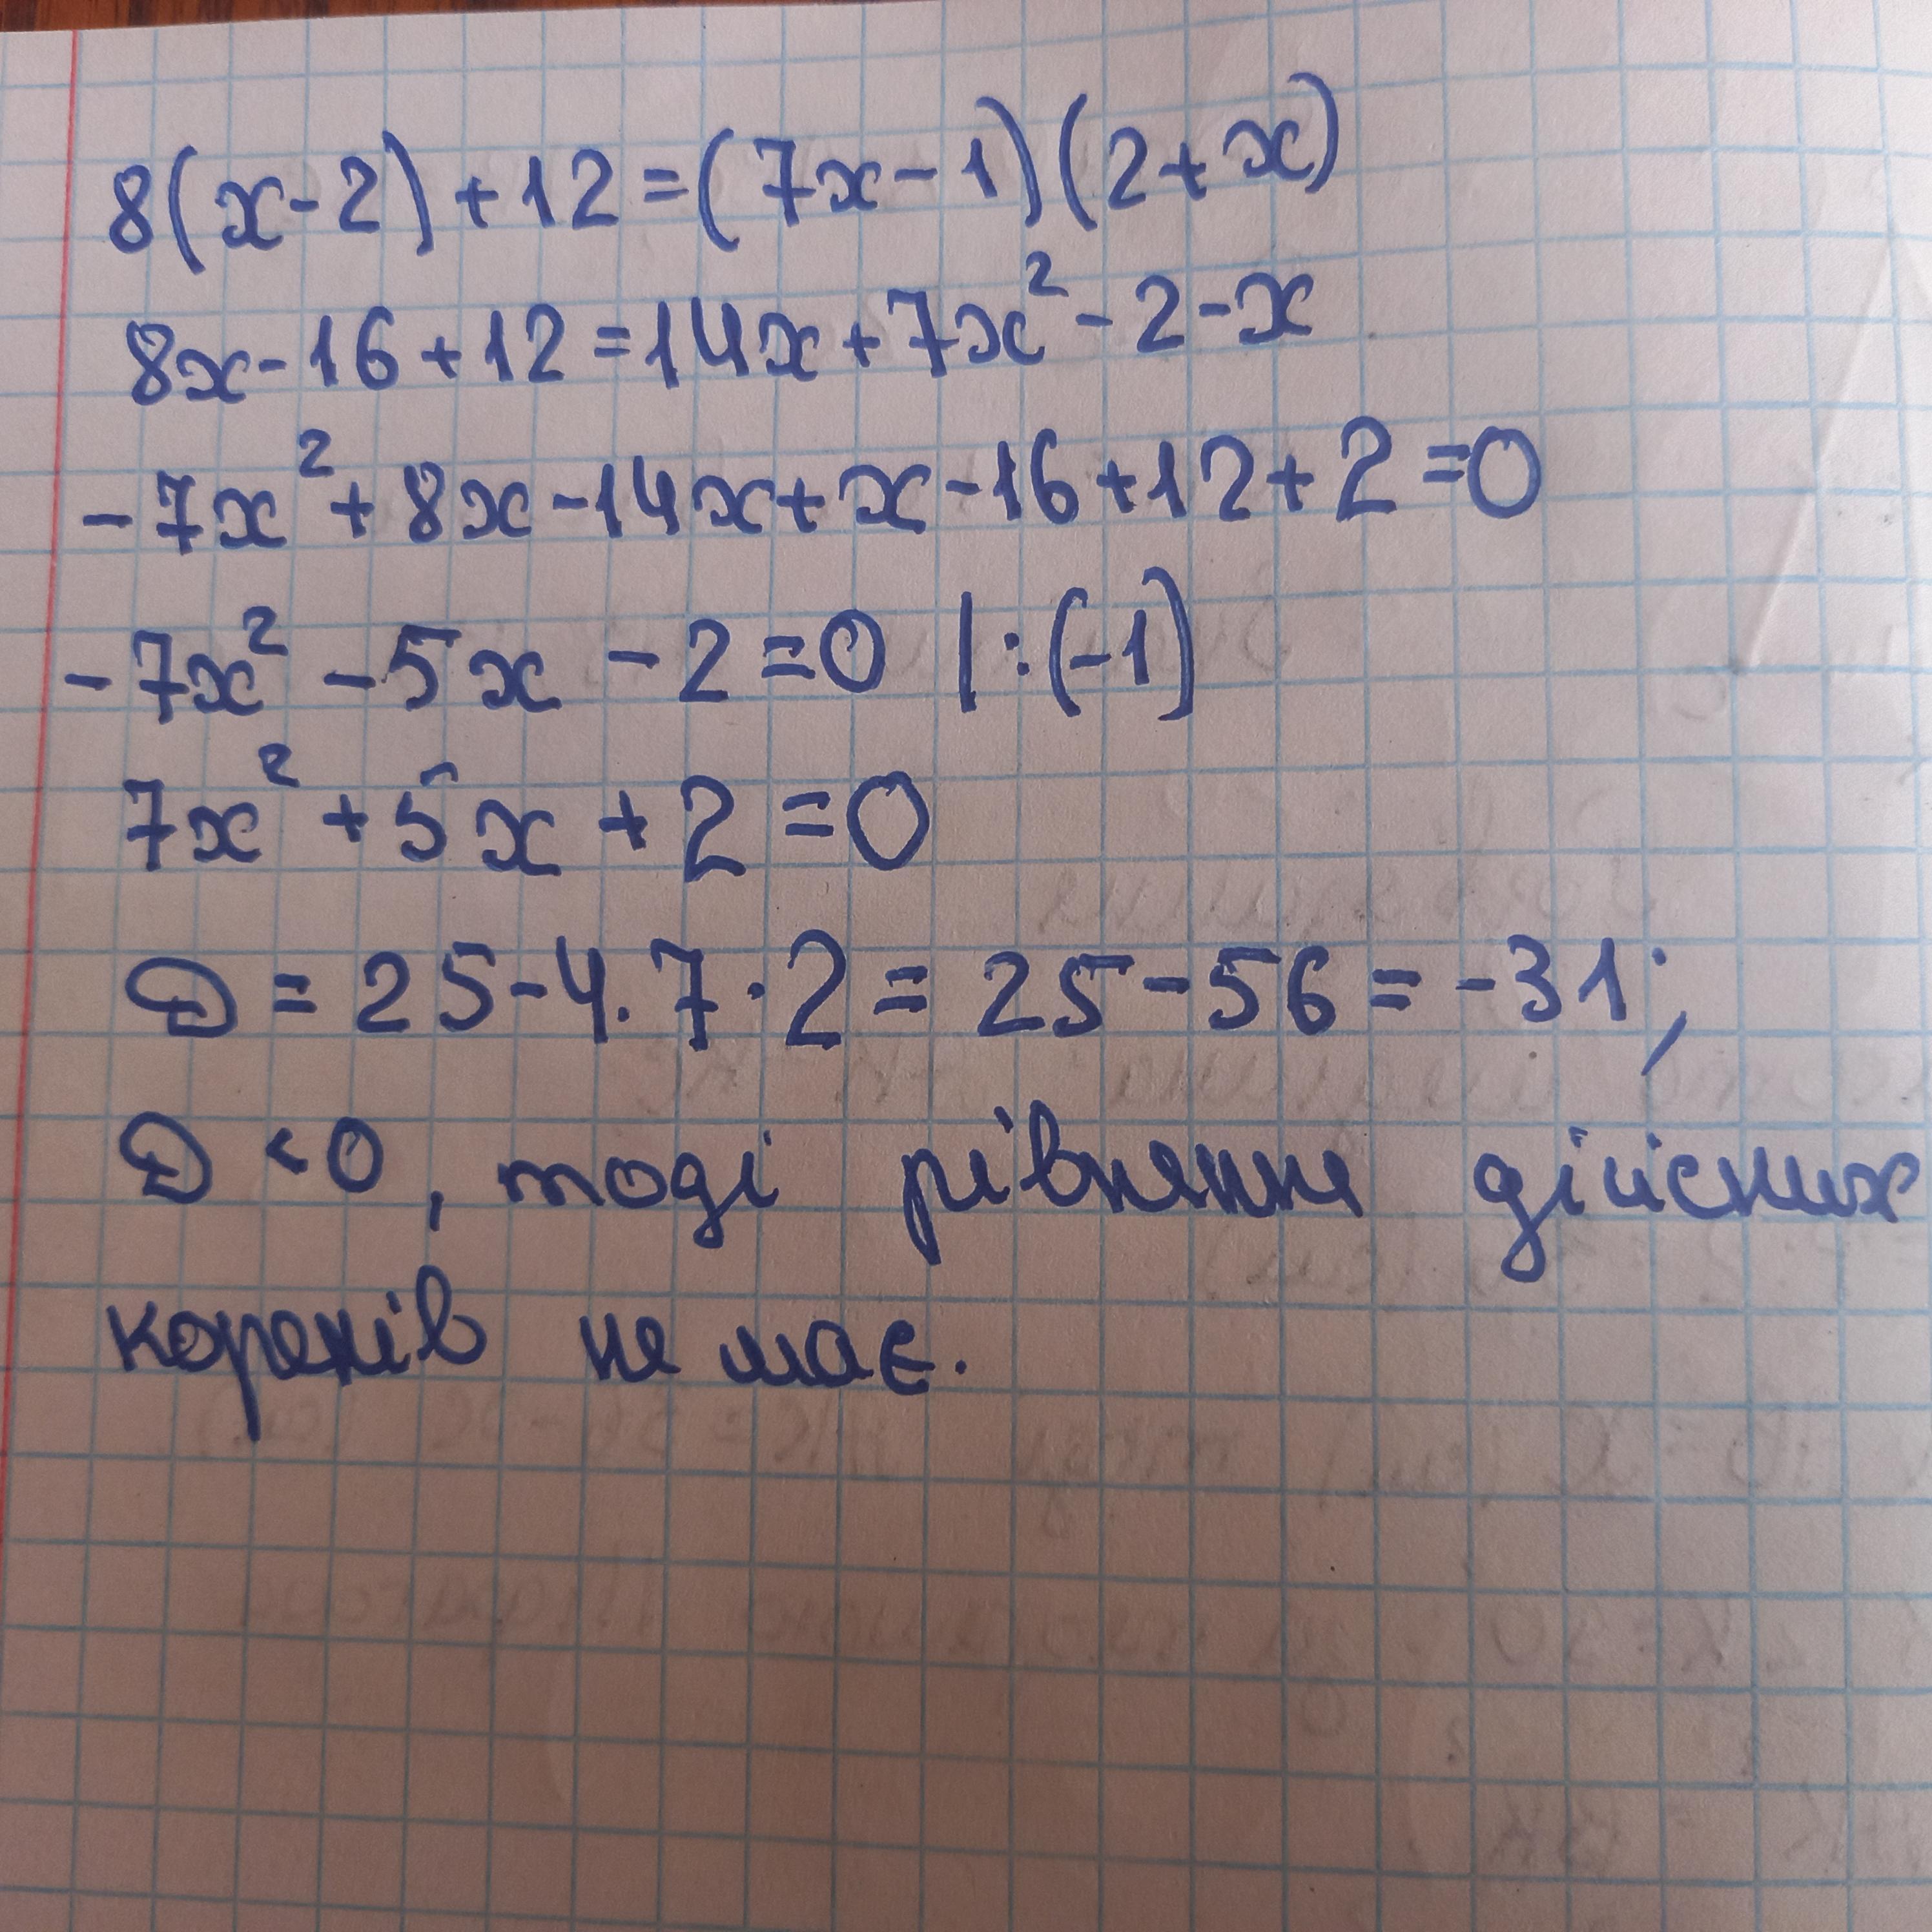 8(x-2)+12=(7x-1)(2+x)
8x-16+12=14x+7x²-2-x
-7x²+8x-14x+x-16+12+2=0
-7x²-5x-2=0 |:(-1)
7x²+5x+2=0
D=25-4·7·2=25-56=-31;
D<0, тоді рівняння дійсних
коренів не має.